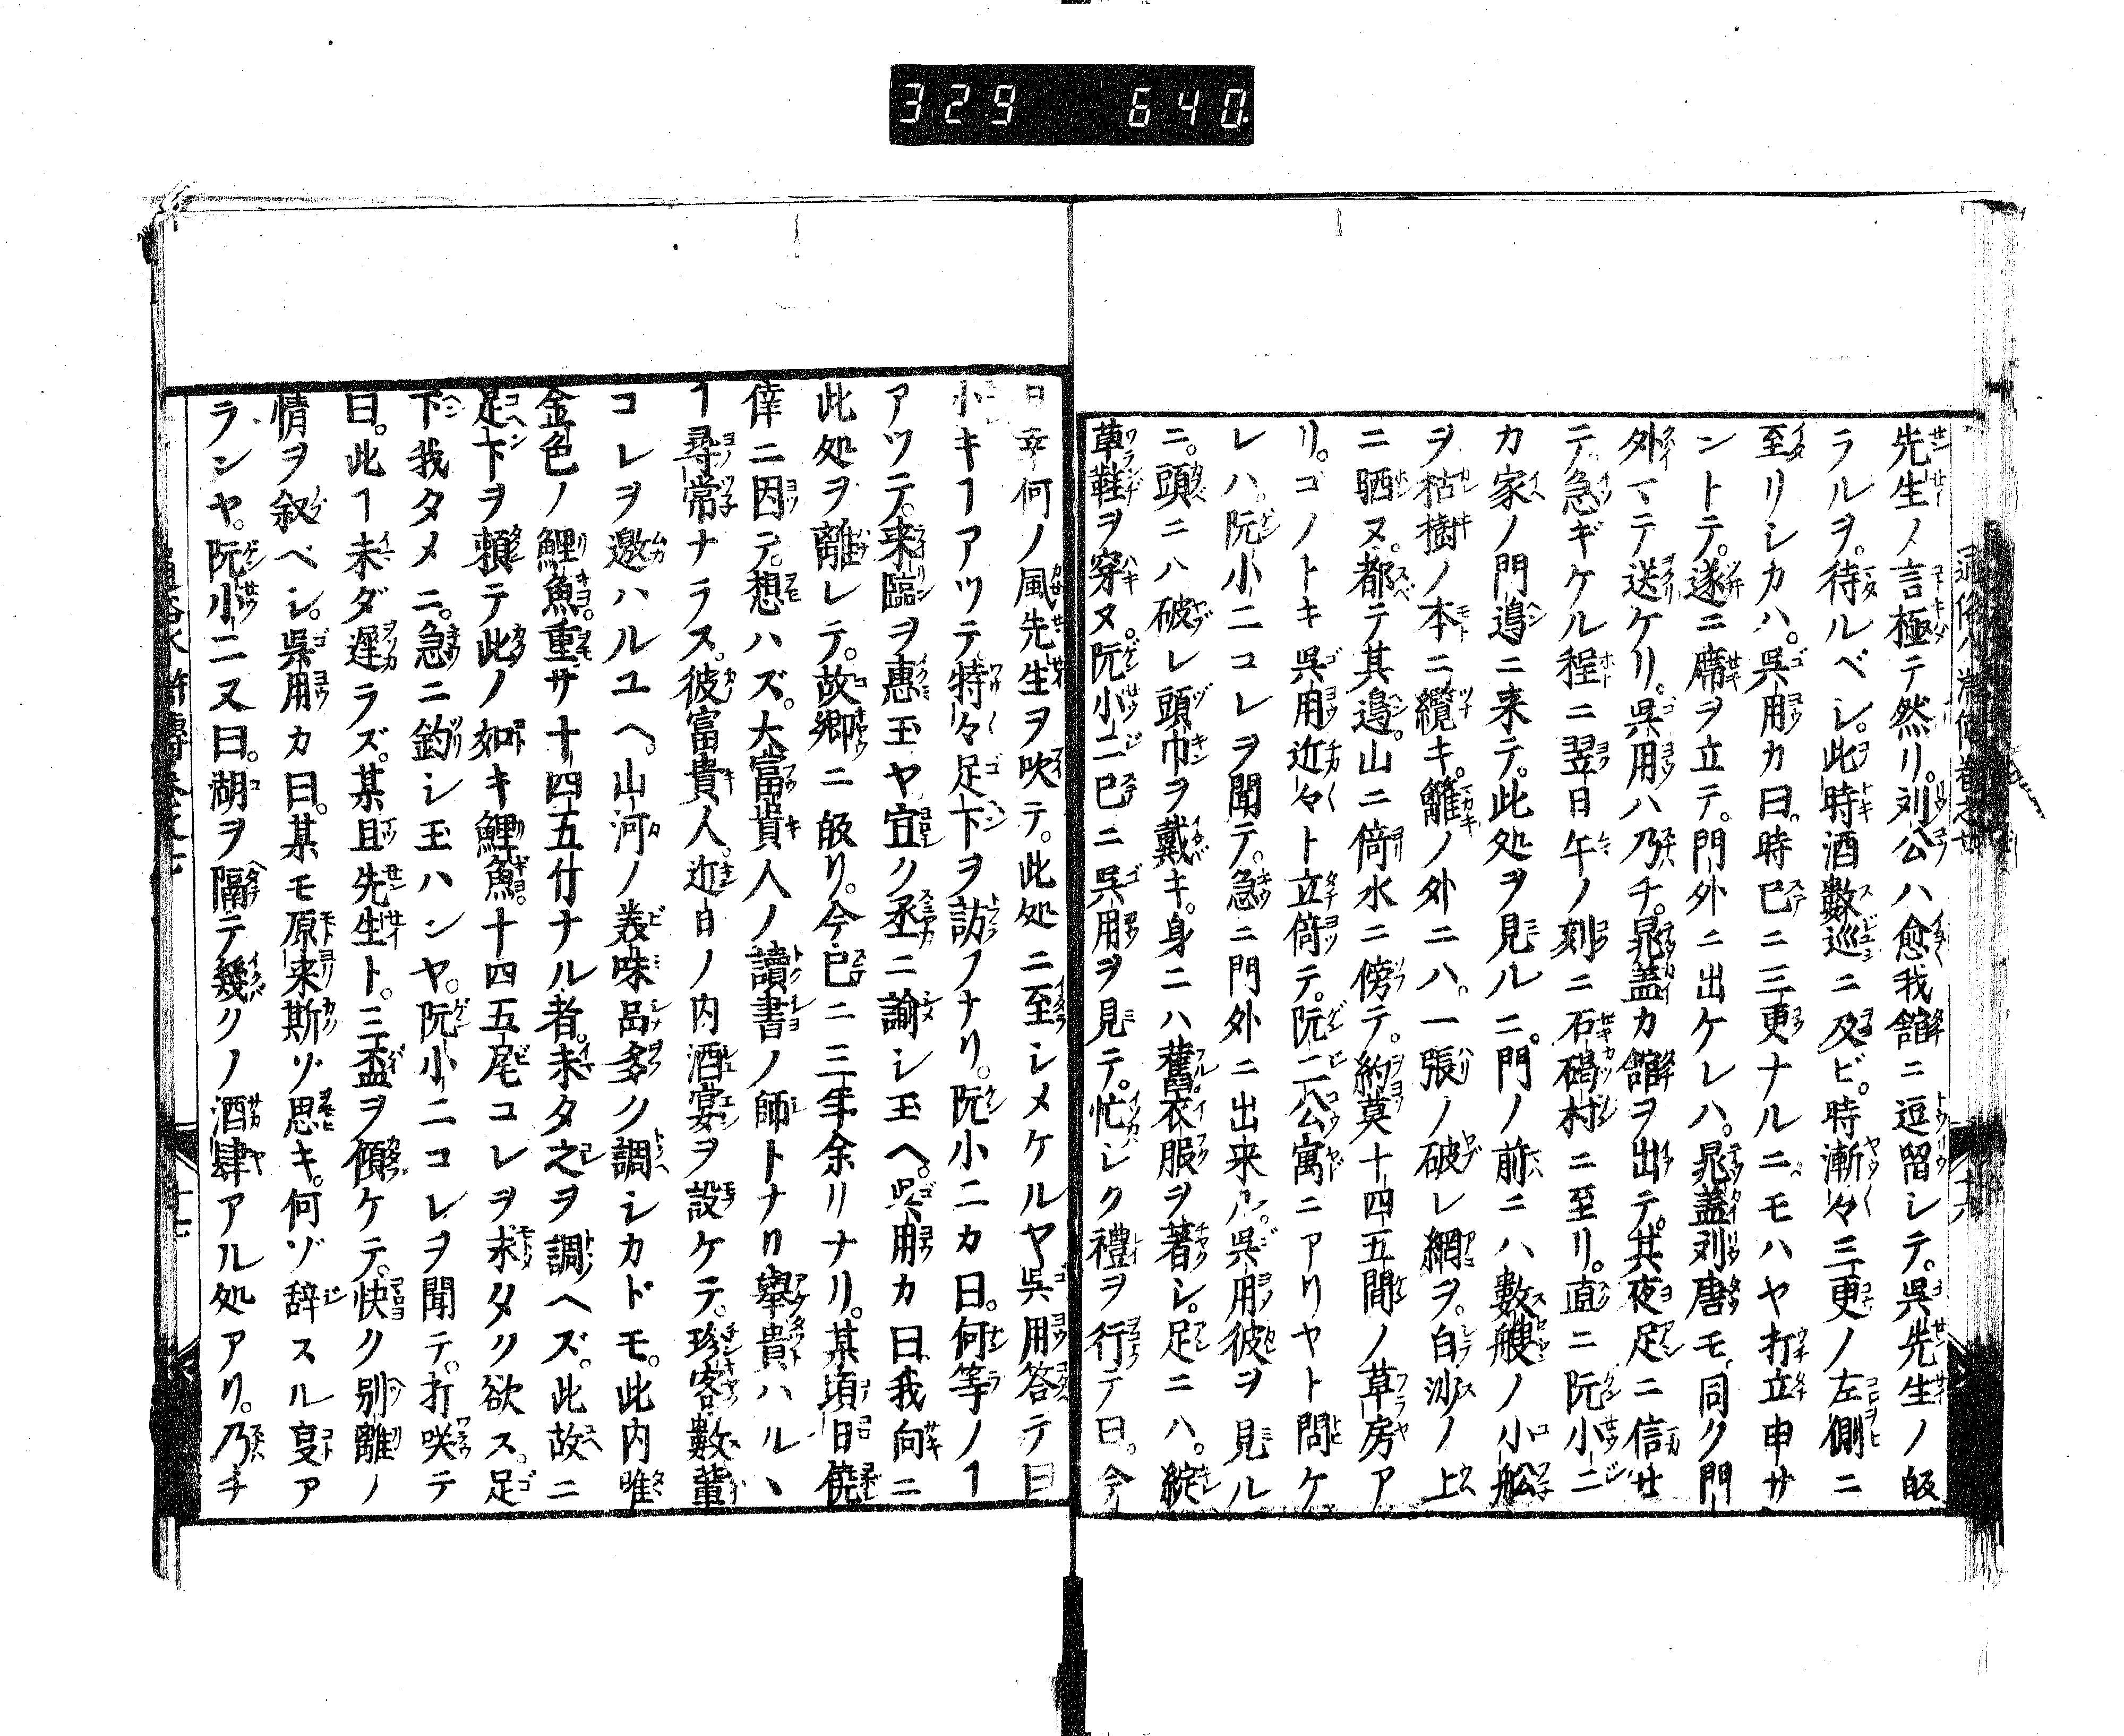 329 640
先生ノ言極テ然リ。刘公ハ愈我舘ニ逗留シテ。呉先生ノ皈
ラルヲ。待ルベシ。此時酒數巡ニ及ビ。時漸々三更ノ左側ニ
至リシカハ。呉用カ曰。時已ニ三更ナルニ。モハヤ打立申サ
ントテ。遂ニ席ヲ立テ。門外ニ出ケレハ。晁蓋刘唐モ。同ク門
外ヽテ送ケリ。呉用ハ乃チ。晁蓋カ舘ヲ出テ。其夜足ニ信セ
テ。急ギケル程ニ翌日午ノ刻ニ石碣村ニ至リ。直ニ阮小二
カ家ノ門邉ニ来テ。此処ヲ見ルニ。門ノ前ニハ數艘ノ小舩
ヲ枯樹ノ本ニ纜キ。籬ノ外ニハ。一張ノ破レ網ヲ。白沙ノ上
ニ晒ヌ。都テ其邉。山ニ倚水ニ傍テ。約莫十四五間ノ草房ア
リ。ゴノトキ呉用近々ト立倚テ。阮二公寓ニアリヤト問ケ
レハ。阮小二コレヲ聞テ。急ニ門外ニ出来ル。呉用彼ヲ見ル
ニ。頭ニハ破レ頭巾ヲ戴キ。身ニハ舊衣服ヲ著シ。足ニハ。綻
草鞋ヲ穿ヌ。阮小二已ニ呉用ヲ見テ。忙シク禮ヲ行テ曰。今
日幸何ノ風先生ヲ吹テ。此処ニ至シメケルヤ呉用答テ曰
小キヿアツテ。特々足下ヲ訪フナリ。阮小二カ曰。何等ノヿ
アツテ。来臨ヲ惠玉ヤ宜ク丞ニ諭シ玉ヘ。呉用カ曰我向ニ
此処ヲ離レテ。故郷ニ皈リ。今已ニ三年余リナリ。某頃日僥
倖ニ因テ。想ハズ。大富貴人ノ讀書ノ師トナリ擧貴ハルヽ
ヿ尋常ナラス。彼富貴人。近日ノ内酒宴ヲ設ケテ。珍客數輩
コレヲ邀ハルユヘ。山河ノ美味品多ク調シカドモ。此内唯
金色ノ鯉魚。重サ十四五斤ナル者。未タ之ヲ調ヘズ。此故ニ
足下ヲ頼テ此ノ如キ鯉魚。十四五尾コレヲ求タク欲ス。足
下我タメニ。急ニ釣シ玉ハンヤ。阮小二コレヲ聞テ。打咲テ
曰。此ヿ未ダ遲ラズ。某且先生ト。三盃ヲ傾ケテ。快ク別離ノ
情ヲ叙ベシ。呉用カ曰。某モ原来斯ゾ思キ。何ゾ辞スル叓ア
ランヤ。阮小二又曰。湖ヲ隔テ幾クノ酒肆アル処アリ。乃チ